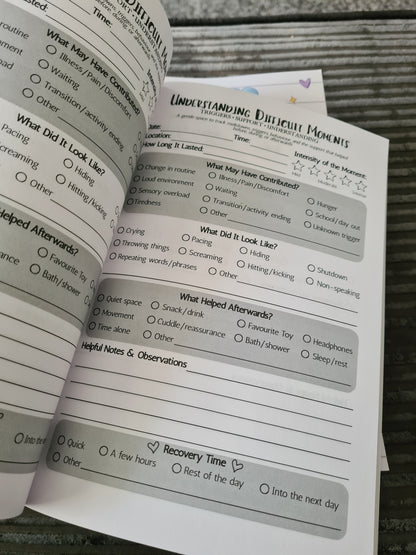 DIFFICULT M
PORT • UNDERSTAN
lasted:
Time:
What May Have Contributed?
routine
Illness/Pain/Discomfort
Waiting
Transition/activity ending
Other
What Did It Look Like?
Pacing
Hiding
Screaming
Hitting/kicking
Other
Helped Afterwards?
Favourite Toy
Bath/shower
Into the
UNDERSTANDING DIFFICULT MOMENTS
TRIGGERS • SUPPORT • UNDERSTANDING
A gentle space to track meltdowns, triggers, behaviours, and the support that helped
before, during or afterwards
Date:
Time:
Location:
How Long It Lasted:
Intensity of the Moment:
What May Have Contributed?
Change in routine
Illness/Pain/Discomfort
Hunger
Loud environment
Waiting
School/day out
Sensory overload
Transition/activity ending
Unknown trigger
Tiredness
Other
What Did It Look Like?
Crying
Pacing
Hiding
Shutdown
Throwing things
Screaming
Hitting/kicking
Non-speaking
Repeating words/phrases
Other
What Helped Afterwards?
Quiet space
Snack/drink
Favourite Toy
Headphones
Movement
Cuddle/reassurance
Bath/shower
Sleep/rest
Time alone
Other
Helpful Notes & Observations
Recovery Time
Quick
A few hours
Rest of the day
Into the next day
Other